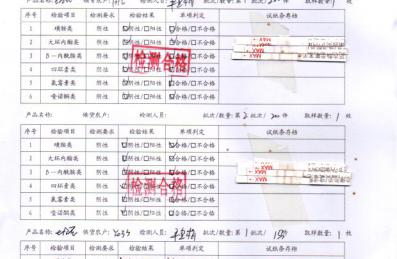 产品名称: 供货农户: 检测人员: 批次/数量: 第 批次/ 件 取样数量: 1 枚
序号 检验项目 检测要求 检验结果 单项判定 试纸条存档
1 磺胺类 阴性 ☑阴性/□阳性 ☑合格/□不合格
2 大环内酯类 阴性 ☑阴性/□阳性 ☑合格/□不合格
3 β-内酰胺类 阴性 ☑阴性/□阳性 ☑合格/□不合格
4 四环素类 阴性 ☑阴性/□阳性 ☑合格/□不合格
5 氟霉素类 阴性 ☑阴性/□阳性 ☑合格/□不合格
6 喹诺酮类 阴性 ☑阴性/□阳性 ☑合格/□不合格
检测合格
MAX
产品名称: 供货农户: 检测人员: 批次/数量: 第 2 批次/ 件 取样数量: 1 枚
序号 检验项目 检测要求 检验结果 单项判定 试纸条存档
1 磺胺类 阴性 ☑阴性/□阳性 ☑合格/□不合格
2 大环内酯类 阴性 ☑阴性/□阳性 ☑合格/□不合格
3 β-内酰胺类 阴性 ☑阴性/□阳性 ☑合格/□不合格
4 四环素类 阴性 ☑阴性/□阳性 ☑合格/□不合格
5 氟霉素类 阴性 ☑阴性/□阳性 ☑合格/□不合格
6 喹诺酮类 阴性 ☑阴性/□阳性 ☑合格/□不合格
检测合格
MAX
产品名称: 供货农户: 检测人员: 批次/数量: 第 1 批次/ 件 取样数量: 1 枚
序号 检验项目 检测要求 检验结果 单项判定 试纸条存档